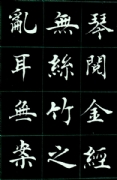 琴閱金經
無絲竹之
亂耳無案